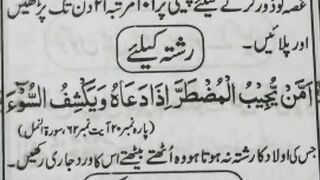 غصہ کو دور کرنے کیلئے چینی پر ۱۰۱ مرتبہ ۲۱ دن تک پڑھیں
اور پلائیں۔
رشتہ کیلئے
اَمَّنْ يُّجِيْبُ الْمُضْطَرَّ اِذَا دَعَاهُ وَيَكْشِفُ السُّوْٓءَ
(پارہ نمبر ۲۰ آیت نمبر ۶۲، سورۃ النمل)
جس کی اولاد کا رشتہ نہ ہوتا ہو وہ اُٹھتے بیٹھتے اس کا ورد جاری رکھیں۔